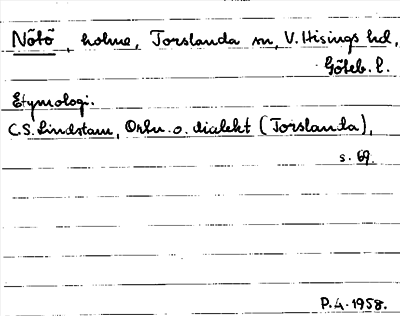 Nötö, holme, Torslanda sn, V. Hisings hd,
Göteb. l.
Etymologi.
C.S. Lindstam, Ortn. o. dialekt (Torslanda),
s. 69.
P.4.1958.